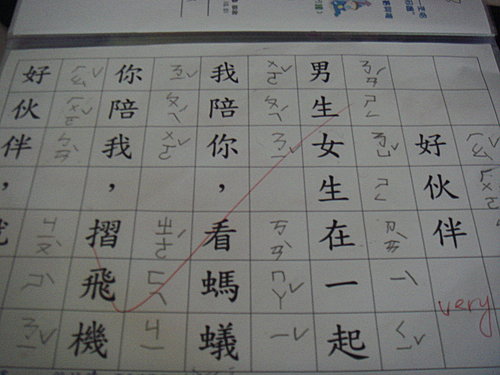 好伙伴
ㄏㄠˇ ㄏㄨㄛˇ
very
男生女生在一起
ㄋㄢˊ ㄕㄥ ㄋㄩˇ ㄕㄥ ㄗㄞˋ ㄧ ㄑㄧˇ
我陪你，看螞蟻
ㄨㄛˇ ㄆㄟˊ ㄋㄧˇ ㄎㄢˋ ㄇㄚˇ ㄧˇ
你陪我，摺飛機
ㄋㄧˇ ㄆㄟˊ ㄨㄛˇ ㄓㄜˊ ㄈㄟ ㄐㄧ
好伙伴，
ㄏㄠˇ ㄏㄨㄛˇ ㄅㄢˋ